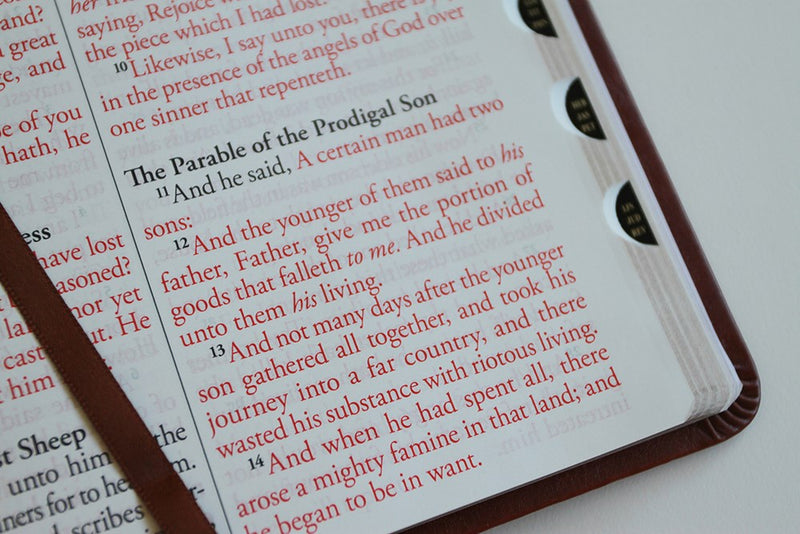 and?
great
ge, and
be of you
hath, he
ess
have lost
asoned?
nor yet
cast
ut. He
him
st Sheep
the
unto him
ners for to he
m.
scribes
her
saying, Rejoice w
the piece which I had lost.
10 Likewise, I say unto you, there is j
in the presence of the angels of God over
one sinner that repenteth.
The Parable of the Prodigal Son
11 And he said, A certain man had two
sons:
12 And the younger of them said to his
father, Father, give me the portion of
goods that falleth to me. And he divided
unto them his living.
13 And not many days after the younger
son gathered all together, and took his
journey into a far country, and there
wasted his substance with riotous living.
14 And when he had spent all, there
arose a mighty famine in that land; and
he began to be in want.
HEB
JAS
PET
JUD
REV